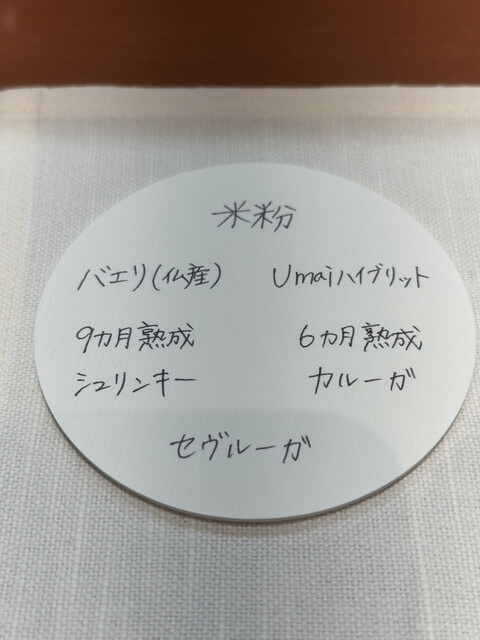 米粉
バエリ(仏産) Umaiハイブリット
9カ月熟成 6カ月熟成
シュリンキー カルーガ
セヴルーガ